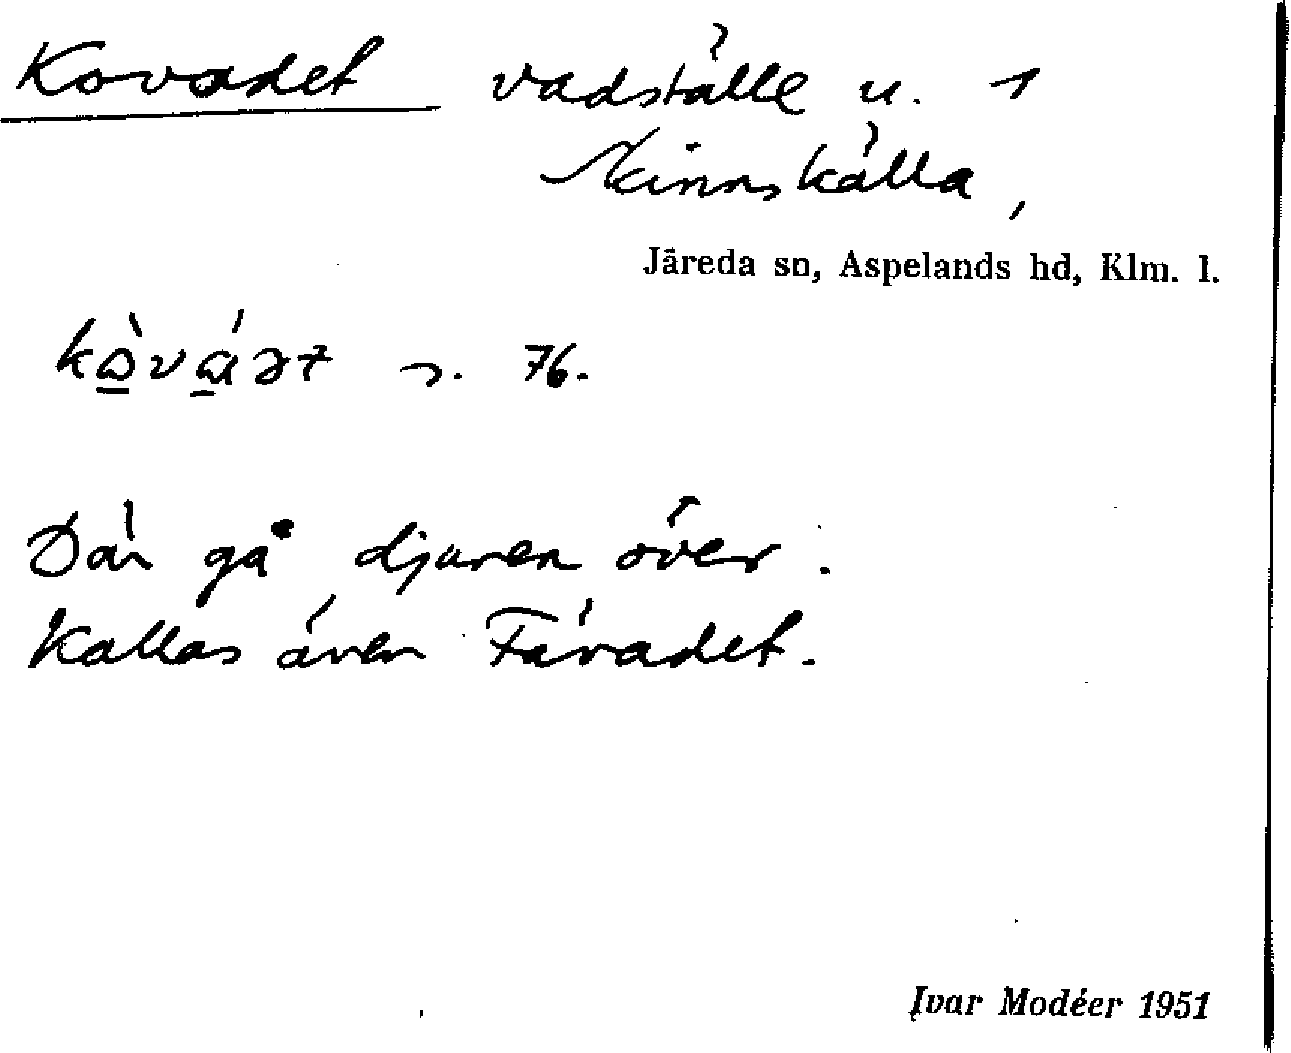 Kovadet vadställe u. 1
Kinnskälla,
Järeda sn, Aspelands hd, Klm. l.
s. 76.
Där gå djuren över.
Kallas även Fävadet.
Ivar Modéer 1951